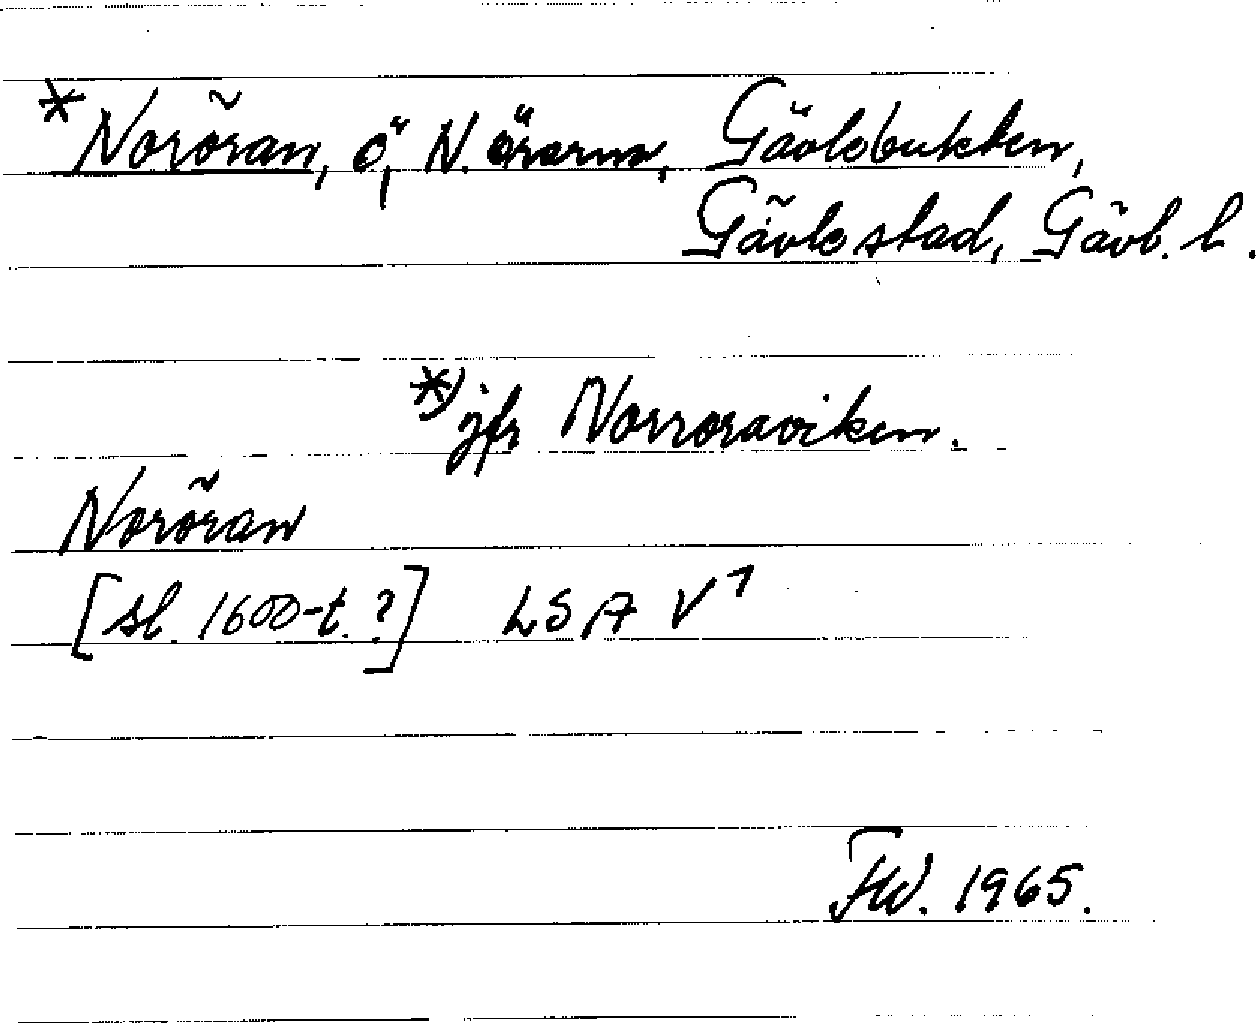 *Noröran, ö, N. örarna, Gävlebukten,
Gävle stad, Gävl. l.
*) jfr Norroraviken.
Noröran
[sl. 1600-t.?] LSA V1
FW. 1965.